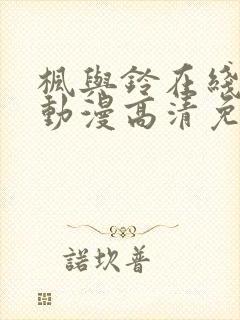 楓與鈴在綫
動漫高清免
諾坎普